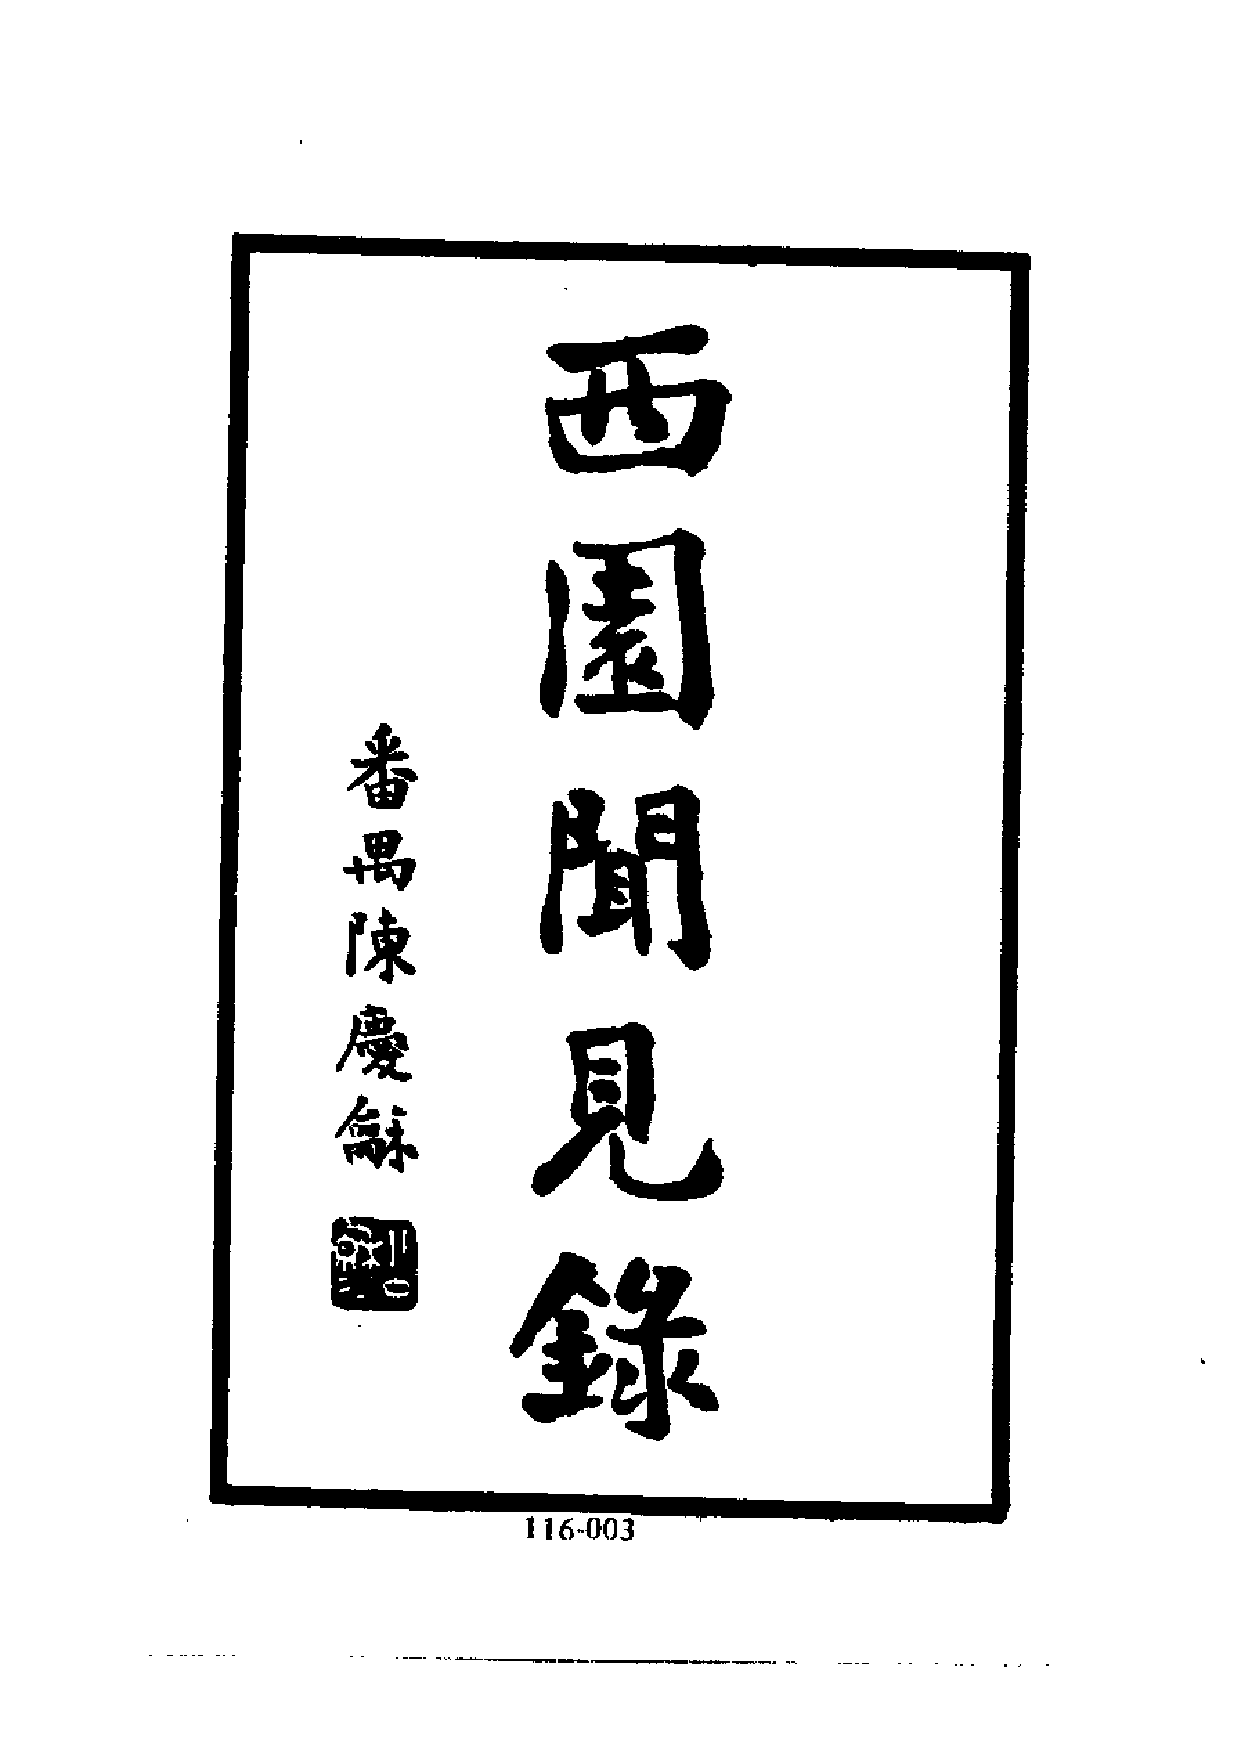 西園聞見錄
番禺陳慶龢
116-003